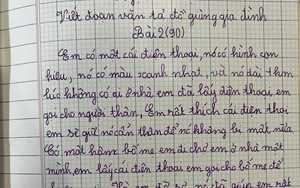 Viết đoạn văn tả đồ dùng gia đình
Bài 2(90)
Em có một cái điện thoại, nó có hình con
hiêu, nó có màu xanh nhạt, và nó dài 7cm
lúc không có ai ở nhà em đã lấy điện thoại em
gọi cho người thân, Em rất thích cái điện thoại
em sẽ giữ nó cẩn thận để nó không bị mất nữa
Có một hôm bố mẹ em đi chợ em ở nhà một
mình, em lấy cái điện thoại em gọi cho bố mẹ để